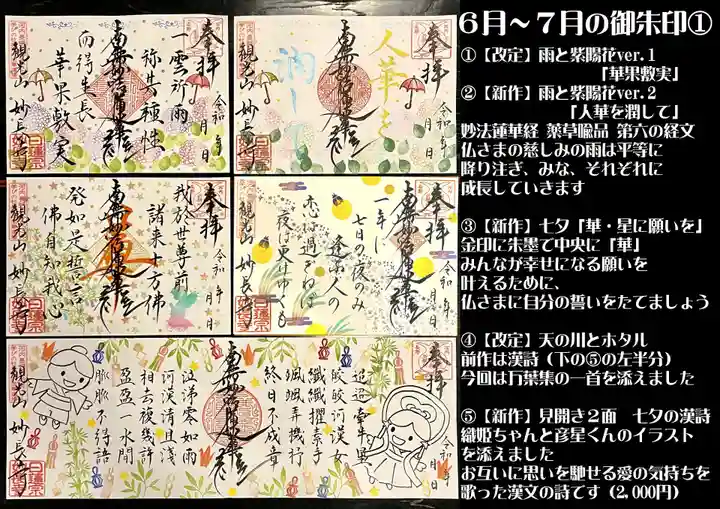 6月～7月の御朱印①
①【改定】雨と紫陽花ver.1
「華果敷実」
②【新作】雨と紫陽花ver.2
「人華を潤して」
妙法蓮華経 薬草喩品 第六の経文
仏さまの慈しみの雨は平等に
降り注ぎ、みな、それぞれに
成長していきます
③【新作】七夕「華・星に願いを」
金印に朱墨で中央に「華」
みんなが幸せになる願いを
叶えるために、
仏さまに自分の誓いをたてましょう
④【改定】天の川とホタル
前作は漢詩（下の⑤の左半分）
今回は万葉集の一首を添えました
⑤【新作】見開き2面 七夕の漢詩
織姫ちゃんと彦星くんのイラスト
を添えました
お互いに思いを馳せる愛の気持ちを
歌った漢文の詩です（2,000円）
奉拝
令和 年 月 日
南無妙法蓮華経
一雲所雨
称其種性
而得生長
華果敷実
観光山 妙長寺
奉拝
令和 年 月 日
南無妙法蓮華経
人華を
潤して
観光山 妙長寺
奉拝
令和 年 月 日
我於世尊前
諸来十方佛
南無妙法蓮華経
発如是誓言
佛自知我心
観光山 妙長寺
奉拝
令和 年 月 日
一年に
七日の夜のみ
逢ふ人の
恋も過ぎねば
夜は更けゆくも
南無妙法蓮華経
観光山 妙長寺
奉拝
令和 年 月 日
迢迢牽牛星
皎皎河漢女
繊繊擢素手
札札弄機杼
終日不成章
南無妙法蓮華経
泣涕零如雨
河漢清且浅
相去複幾許
盈盈一水間
脈脈不得語
観光山 妙長寺